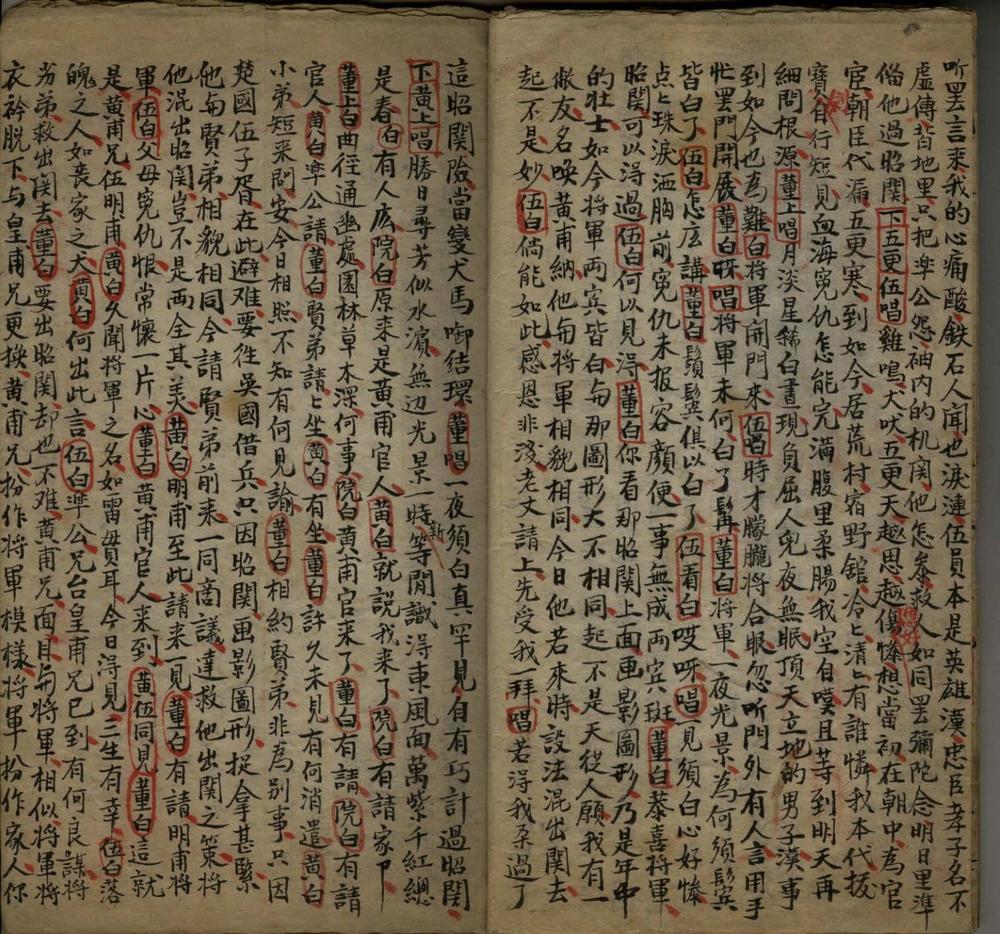 听罢言来我的心痛酸鉄石人闻也淚漣伍員本是英雄漢忠臣孝子名不
虚傳背地里只把準公怨袖内的机関他怎參救人如同罢彌陀念明日里準
偹他過昭関下五更伍唱雞鳴犬吠五更天越思越傷慘想當初在朝中為官
宦朝臣代漏五更寒到如今居荒村宿野舘冷〻清〻有誰憐我本代拔
寳自行短見血海寃仇怎能完滿腹里柔腸我空自嘆且等到明天再
細問根源董上唱月淡星稀白書現負屈人兒夜無眠頂天立地的男子漢事
到如今也為難白将軍開門来伍唱時才朦朧将合眼忽听門外有人言用手
忙罢門開展董白呀唱将軍未何白了髯董白将軍一夜光景為何須髪宾
皆白了伍白怎庅講董白鬚髮俱以白了伍看白哎呀唱一見須白心好慘
点〻珠淚洒胸前寃仇未报容顔便一事無成两宾斑董白恭喜将軍
昭関可以淂過伍白何以見淂董白你看那昭関上面画影圖形乃是年中
的壮士如今将軍两宾皆白与那圖形大不相同起不是天從人願我有一
敝友名唤黄甫納他与將軍相貌相同今日他若來時設法混出関去
起不是妙伍白倘能如此感恩非淺老丈請上先受我一拜唱若得我朶過了
這昭関險當變犬馬啣结環董唱一夜須白真罕見自有巧計過昭関
下黄上唱勝日尋芳似水濵無边光景一時新等閒識淂東風面萬紫千紅總
是春白有人庅院白原来是黄甫官人黄白就說我来了院白有請家卩
董上白曲徑通幽處園林草木深何事院白黄甫官来了董白有請院白有請
官人黄白準公請董白賢弟請〻坐黄白有坐董白許久未見有何消遣黄白
小弟短来問安今日相照不知有何見諭董白相約賢弟非為别事只因
楚國伍子胥在此避难要徃吳國借兵只因昭関画影圖形捉拿甚緊
他与賢弟相貌相同今請賢弟前来一同商議達救他出関之策将
他混出昭関豈不是两全其美黄白明甫至此請来一見董白有請明甫将
軍伍白父母寃仇恨常懷一片心董白黄甫官人来到黄伍同見董白這就
是黄甫兄伍明甫黄白久聞将軍之名如雷貫耳今日淂見三生有幸伍白落
魄之人如喪家之犬黄白何出此言伍白準公兄台皇甫兄已到有何良謀将
劣弟救出関去董白要出昭関却也不难黄甫兄面目与将軍相似将軍将
衣衿脱下与皇甫兄更换黄甫兄扮作将軍模樣将軍扮作家人你